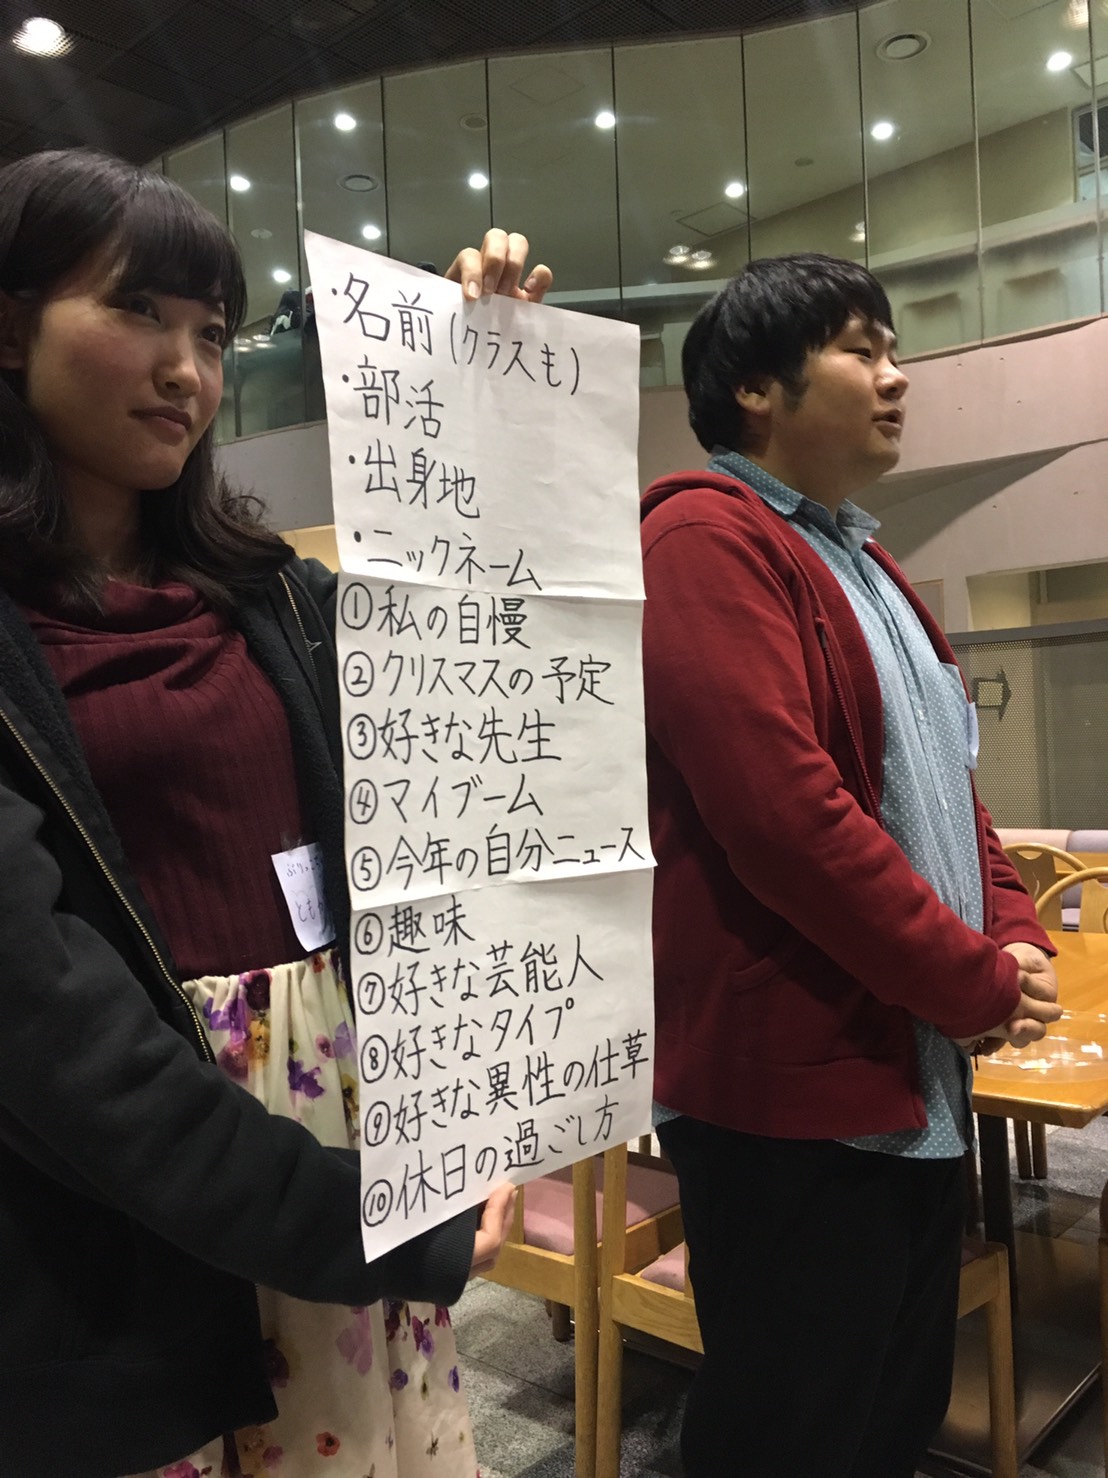 ・名前(クラスも)
・部活
・出身地
・ニックネーム
①私の自慢
②クリスマスの予定
③好きな先生
④マイブーム
⑤今年の自分ニュース
⑥趣味
⑦好きな芸能人
⑧好きなタイプ
⑨好きな異性の仕草
⑩休日の過ごし方